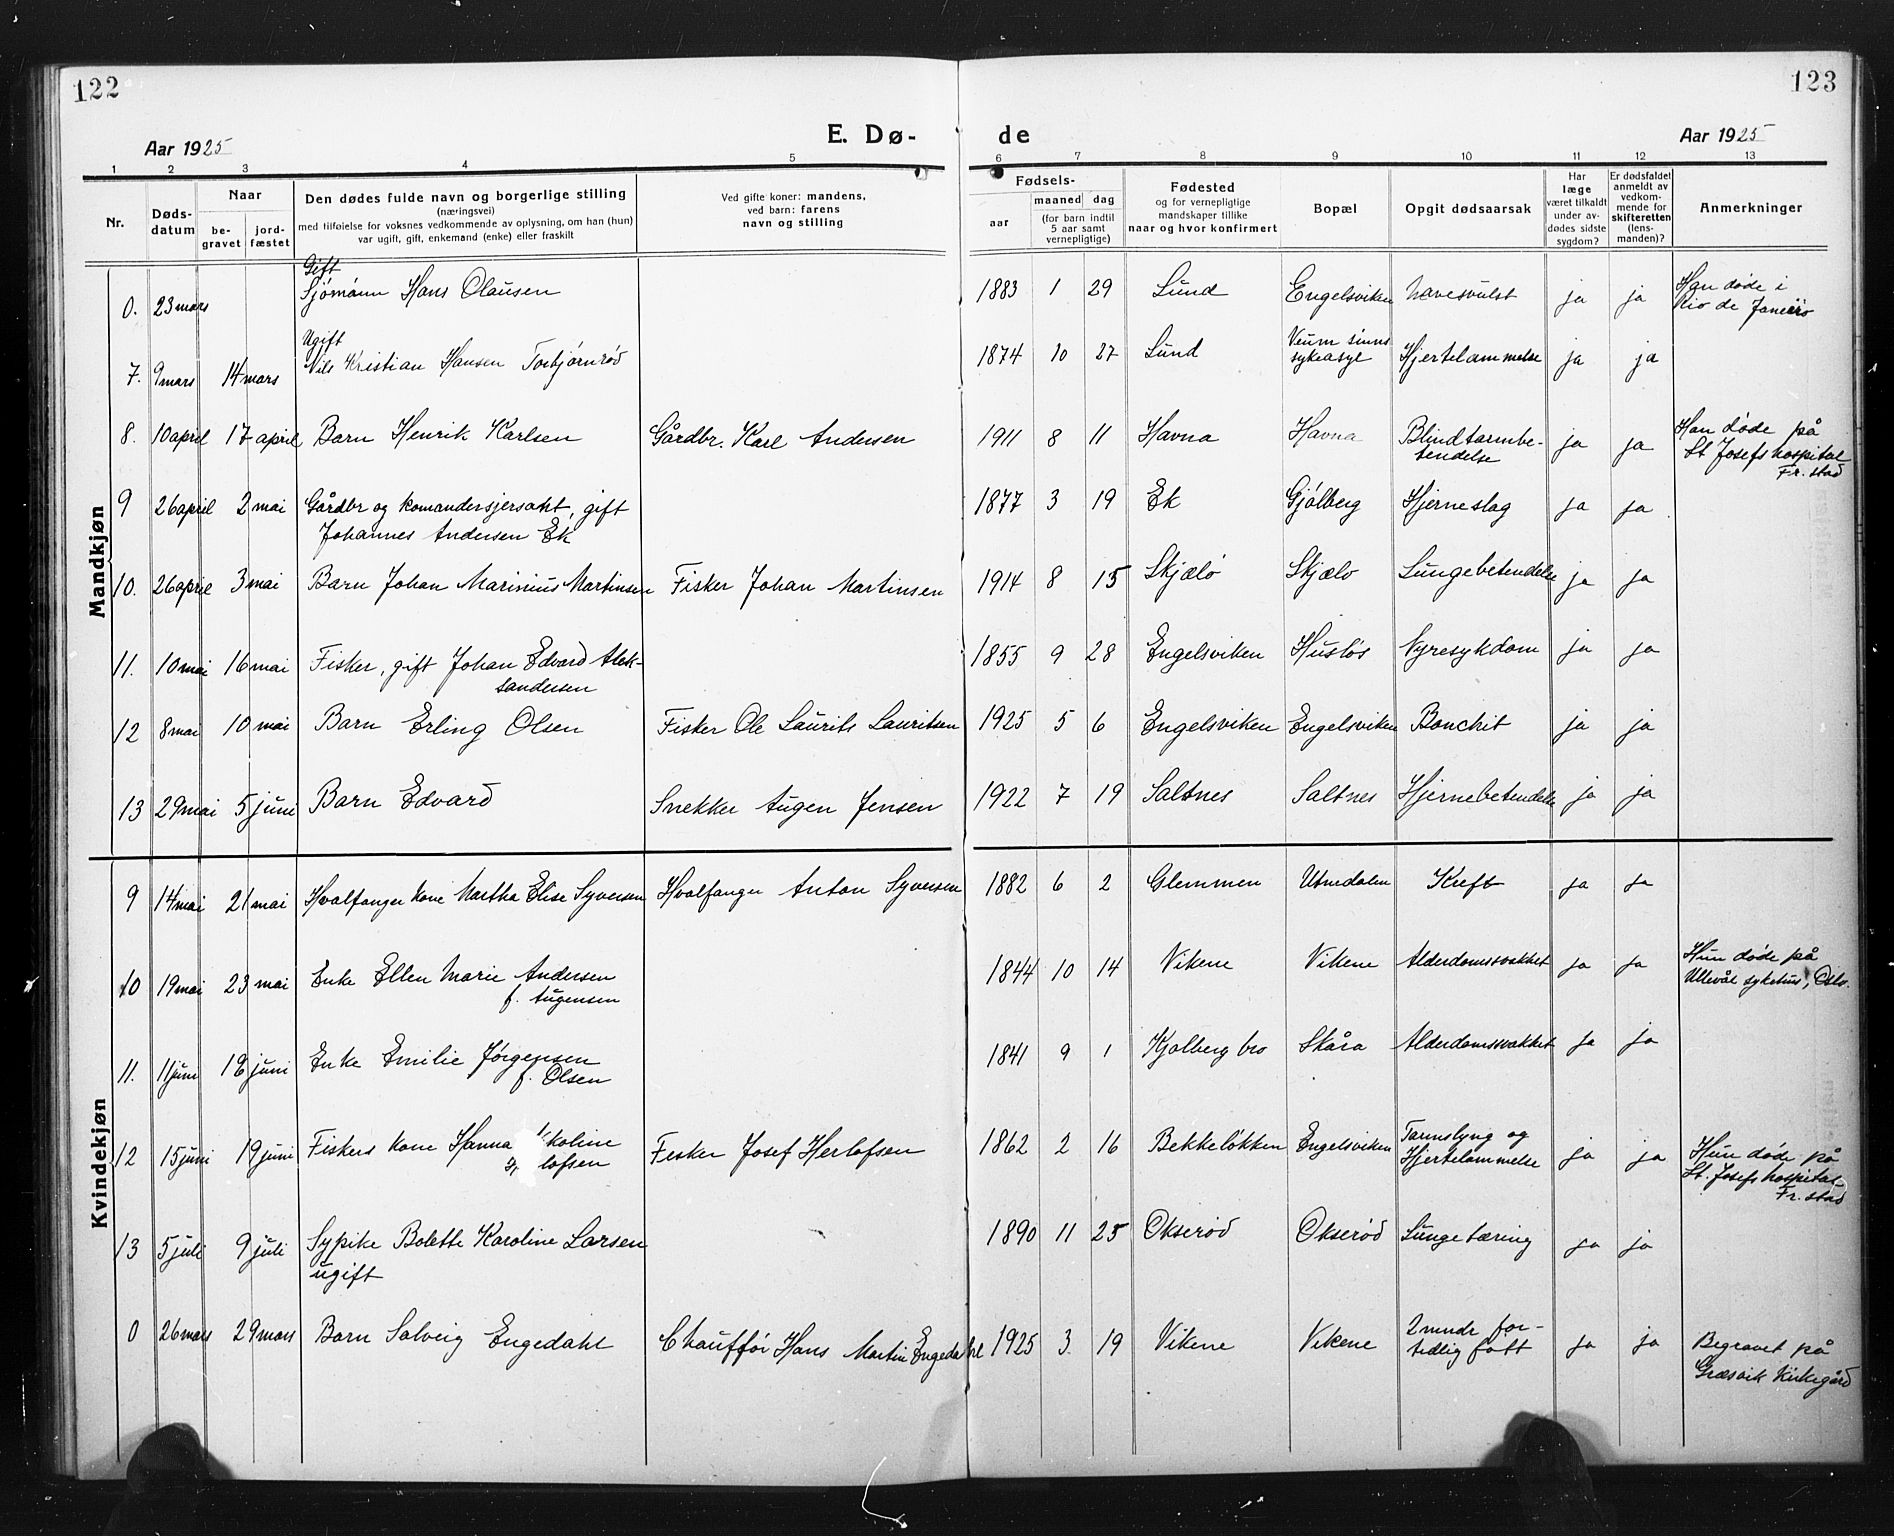 122
123
Aar 1925
E. Dø-
de
Aar 1925
1 2 3 4 5 6 7 8 9 10 11 12 13
Nr.
Døds-
datum
Naar
be-
gravet
jord-
fæstet
Den dødes fulde navn og borgerlige stilling
(næringsvei)
med tilføielse for voksnes vedkommende av oplysning, om han (hun)
var ugift, gift, enkemand (enke) eller fraskilt
Ved gifte koner: mandens,
ved barn: farens
navn og stilling
Fødsels-
aar
maaned dag
(for barn indtil
5 aar samt
vernepligtige)
Fødested
og for vernepligtige
mandskaper tillike
naar og hvor konfirmert
Bopæl
Opgit dødsaarsak
Har
læge
været tilkaldt
under av-
dødes sidste
sygdom?
Er dødsfaldet
anmeldt av
vedkom-
mende for
skifteretten
(lens-
manden)?
Anmerkninger
Mandkjøn
Gift
0. 23 mars Sjómánn Hans Olausen 1883 1 29 Lund Engelsviken Mavesvulst ja ja Han døde i
Rio de Janeiro
Ugift
7. 9 mars 14 mars Nils Kristian Hansen Torbjørnrød 1874 10 27 Lund Veum sinns
sykeasyl Hjertelammelse ja ja
8. 10 april 17 april Barn Henrik Karlsen Gårdbr. Karl Andersen 1911 8 11 Havna Havna Blindtarmbe-
tendelse ja ja Han døde på
St Josefs hospital
Fr.stad
9 26 april 2 mai Gårdbr og komandersjersant, gift
Johannes Andersen Ek 1877 3 19 Ek Gjølberg Hjerneslag ja ja
10. 26 april 3 mai Barn Johan Marinius Martinsen Fisker Johan Martinsen 1914 8 15 Skjælø Skjælø Lungebetendelse ja ja
11. 10 mai 16 mai Fisker, gift Johan Edvard Alek-
sandersen 1855 9 28 Engelsviken Husløs Nyresykdom ja ja
12 8 mai 10 mai Barn Erling Olsen Fisker Ole Laurits Lauritsen 1925 5 6 Engelsviken Engelsviken Bonchit ja ja
13 29 mai 5 juni Barn Edvard Snekker Augen Jensen 1922 7 19 Saltnes Saltnes Hjernebetendelse ja ja
Kvindekjøn
9 14 mai 21 mai Hvalfanger kone Martha Elise Syversen Hvalfanger Anton Syversen 1882 6 2 Glemmen Utnedalen Kreft ja ja
10 19 mai 23 mai Enke Ellen Marie Andersen
f. Augensen 1844 10 14 Vikene Vikene Alderdomssvakhet ja ja Hun døde på
Ullevål sykehus, Oslo.
11. 11 juni 18 juni Enke Emilie Jørgensen
f. Olsen 1841 9 1 Kjølberg bro Skåra Alderdomssvakhet ja ja
12 15 juni 19 juni Fiskers kone Hanna koline
lofsen Fisker Josef Herlofsen 1862 2 16 Bekkeløkken Engelsviken Tarmslyng og
Hjertelammelse ja ja Hun døde på
St. Josefs hospital
Fr.stad
13 5 juli 9 juli Sypike Bolette Karoline Larsen
ugift 1890 11 25 Okserød Okserød Lungetæring ja ja
0 26 mars 29 mars Barn Solveig Engedahl Chauffør Hans Martin Engedahl 1925 3 19 Vikene Vikene 2 mndr for-
tidlig født ja ja Begravet på
Græsvik kirkegård